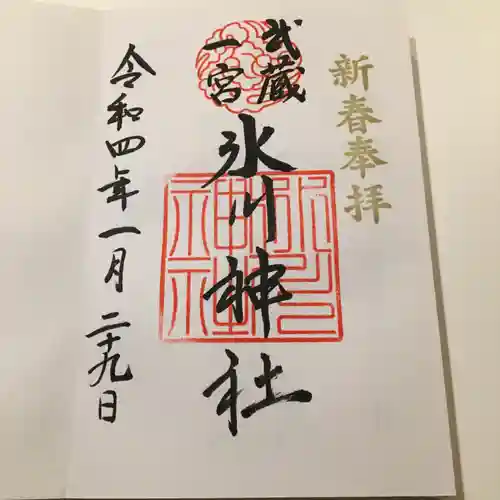 新春奉拝
武蔵
一宮
氷川神社
令和四年一月二十九日
氷川
神社